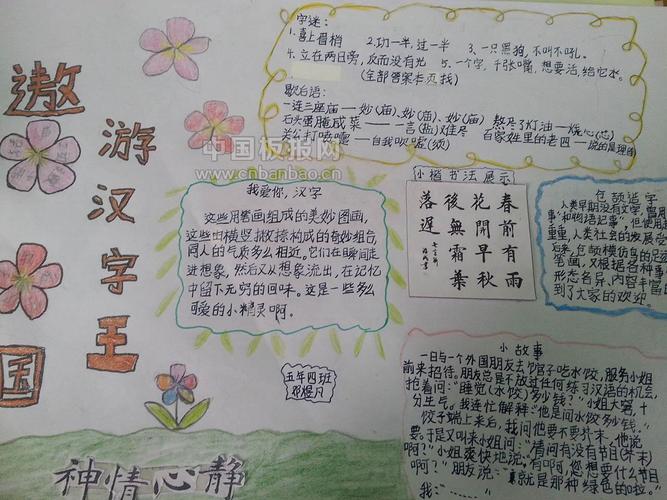 遨游汉字王国
字迷:
1.喜上眉梢 2.功一半,过一半 3、一只黑狗,不叫不吼。
4.立在两日旁,反而没有光 5.一个字,千张嘴,想要活,给它水。
(全部答案本页找)
歇白语:
一连三座庙——妙(庙)、妙(庙)、妙(庙) 熬尽了灯油——烧心(芯)
石头蛋腌咸菜——一言(盐)难尽 百家姓里的老四——说的是理
关公打喷嚏——自我吹嘘(须)
中国板报网
www.cnbanbao.cn
我爱你,汉字
这些用笔画组成的美妙图画,
这些由横竖撇捺构成的奇妙组合,
同人的气质多么相近。它们在瞬间走
进想象,然后又从想象流出,在记忆
中留下无穷的回味。这是一些多么
可爱的小精灵啊。
小楷书法展示
春前有雨
花開早秋
後無霜葉
落遲
包颉造字
人类早期没有文字,
事"和物语记事",但使用
重重,人类社会的发展
后来,包颉模仿鸟的足迹
笔画,又根据各种事
形态名异、内容丰富的
到了大家的欢迎
五年四班
小故事
一日与一个外国朋友去饣官子吃水饺,服务小姐
前来招待。朋友总是不放过任何练习汉语的机会,
抢着问:"睡觉(水饺)多少钱?"小姐大窘,十
分生气。我连忙解释"他是问水饺多少钱。"
饺子端上来后,我问他要不要芥末,他说
要。于是又叫来小姐问:"请问有没有节目(芥末)
啊?"小姐爽快地说:"有啊,您想要什么节目
啊?"朋友说:"就是那种绿色的啦。"
我:……
神情心静